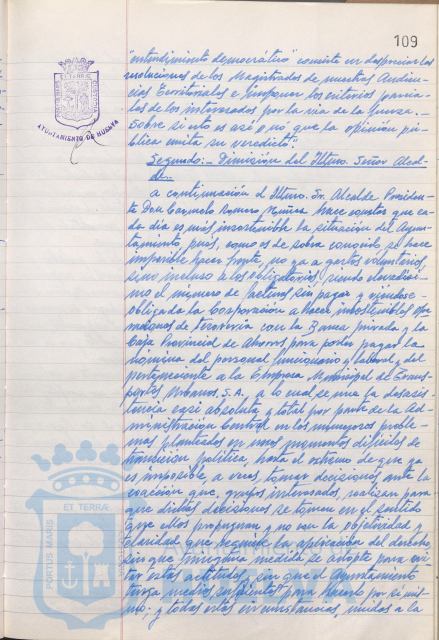 109
"entendimiento democrático" consiste en despreciar las
resoluciones de los Magistrados de nuestras Audien-
cias Territoriales e imponer los criterios parcia-
les de los interesados por la vía de la fuerza.-
Sobre si esto es así o no que la opinión pú-
blica emita su veredicto".
Segundo.- Dimisión del Iltmo. Señor Alcal-
de.-
A continuación el Iltmo. Sr. Alcalde Presiden-
te Don Carmelo Romero Núñez hace constar que ca-
da día es más insostenible la situación del Ayun-
tamiento, pues, como es de sobra conocido se hace
imposible hacer frente, no ya a gastos voluntarios,
sino incluso a los obligatorios, siendo elevadísi-
mo el número de facturas sin pagar y viéndose
obligada la Corporación a hacer insostenibles ope-
raciones de tesorería con la Banca privada y la
Caja Provincial de Ahorros para poder pagar la
nómina del personal funcionario y laboral y del
perteneciente a la Empresa Municipal de Trans-
portes Urbanos, S.A., a lo cual se une la desasis-
tencia casi absoluta y total por parte de la Ad-
ministración Central en los numerosos proble-
mas planteados en unos momentos difíciles de
transición política, hasta el extremo de que ya
es imposible, a veces, tomar decisiones ante la
coacción que, grupos interesados, realizan para
que dichas decisiones se tomen en el sentido
que ellos propugnan y no con la objetividad y
claridad que requiere la aplicación del derecho,
sin que ninguna medida se adopte para evi-
tar estas actitudes y sin que el Ayuntamiento
tenga medios suficientes para hacerlo por sí mis-
mo. Y todas estas circunstancias, unidas a la
AYUNTAMIENTO DE HUELVA
PORTUS MARIS ET TERRAE CUSTODIA
PORTUS MARIS ET TERRÆ
Ayuntamiento de